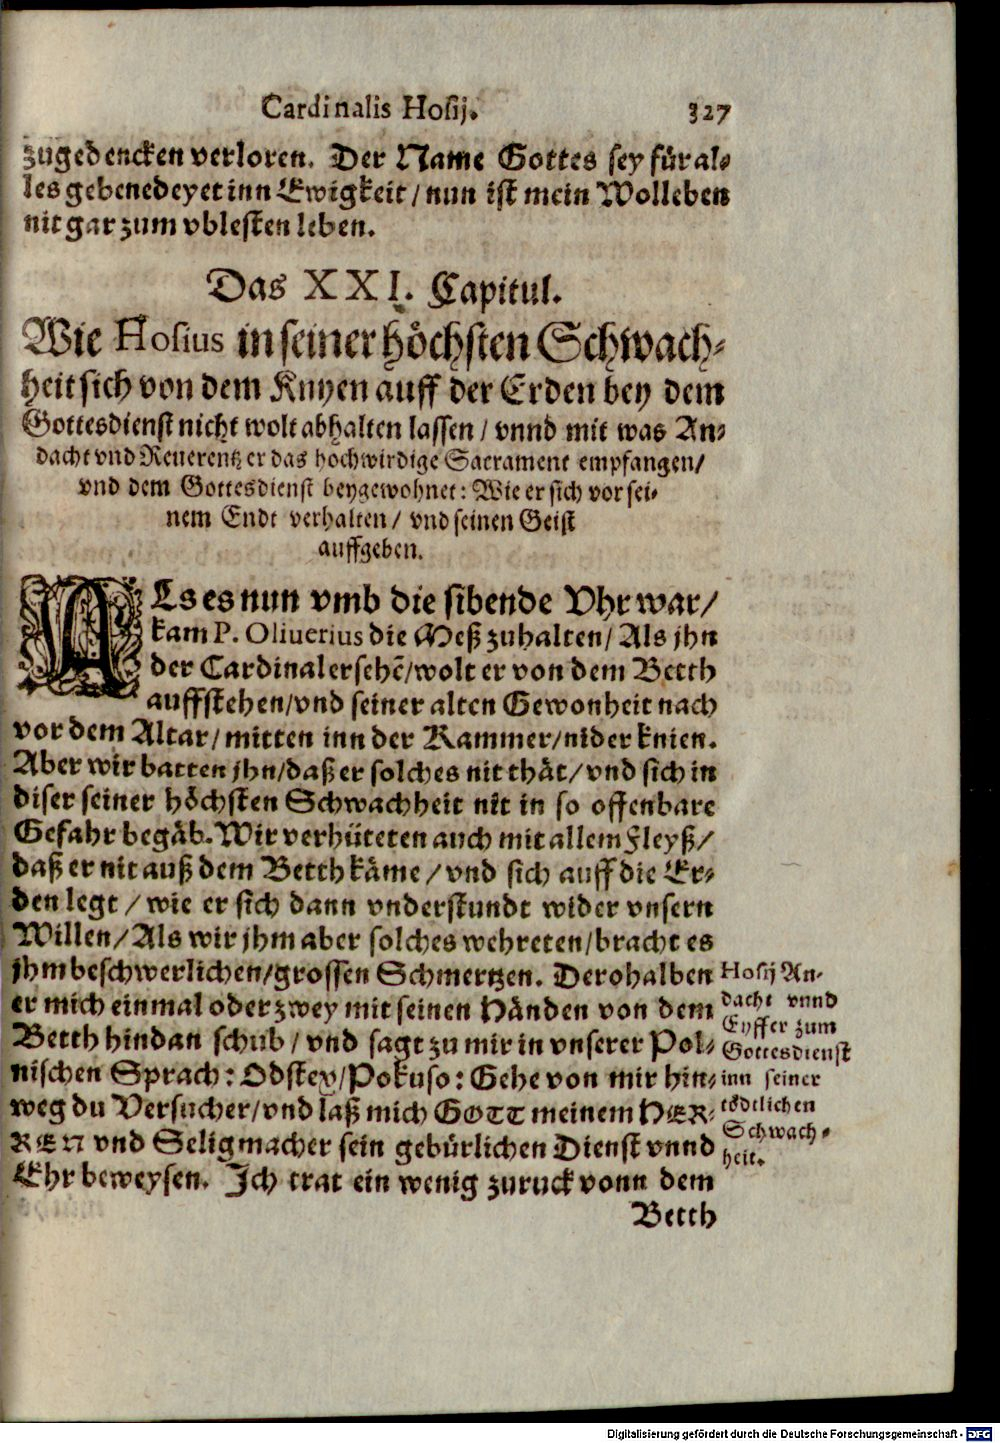 Cardinalis Hosij. 327
zugedencken verloren. Der Name Gottes sey für al-
les gebenedeyet inn Ewigkeit / nun ist mein Wolleben
nit gar zum vblesten leben.
Das XXI. Capitul.
Wie Hosius in seiner höchsten Schwach-
heit sich von dem Knyen auff der Erden bey dem
Gottesdienst nicht wolt abhalten lassen / vnnd mit was An-
dacht vnd Reuerentz er das hochwirdige Sacrament empfangen /
vnd dem Gottesdienst beygewohnet: Wie er sich vor sei-
nem Endt verhalten / vnd seinen Geist
auffgeben.
ALs es nun vmb die sibende Vhr war /
kam P. Oliuerius die Meß zuhalten / Als jhn
der Cardinal ersehẽ / wolt er von dem Betth
auffstehen / vnd seiner alten Gewonheit nach
vor dem Altar / mitten inn der Kammer / nider knien.
Aber wir batten jhn / daß er solches nit thät / vnd sich in
diser seiner höchsten Schwachheit nit in so offenbare
Gefahr begäb. Wir verhüteten auch mit allem Fleyß /
daß er nit auß dem Betth käme / vnd sich auff die Er-
den legt / wie er sich dann vnderstundt wider vnsern
Willen / Als wir jhm aber solches wehreten / bracht es
jhm beschwerlichen / grossen Schmertzen. Derohalben
er mich einmal oder zwey mit seinen Händen von dem
Betth hindan schub / vnd sagt zu mir in vnserer Pol-
nischen Sprach: Odstey / Pokuso: Gehe von mir hin-
weg du Versucher / vnd laß mich GOTT meinem HER-
REN vnd Seligmacher sein gebürlichen Dienst vnnd
Ehr beweysen. Ich trat ein wenig zuruck vonn dem
Betth
Hosij An-
dacht vnnd
Eyffer zum
Gottesdienst
inn seiner
tödtlichen
Schwach-
heit.
Digitalisierung gefördert durch die Deutsche Forschungsgemeinschaft - DFG